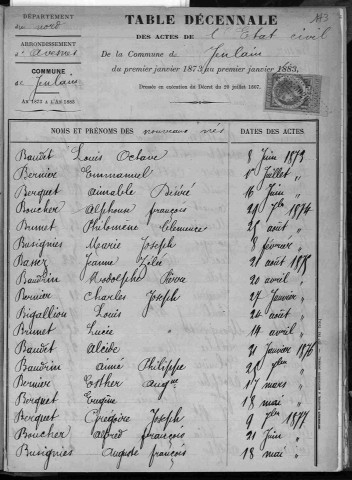 DÉPARTEMENT
du nord
ARRONDISSEMENT
d'Avesnes
COMMUNE
de Jenlain
An 1873 à An 1883
TABLE DÉCENNALE
DES ACTES DE l'Etat civil
De la Commune de Jenlain
du premier janvier 1873 au premier janvier 1883,
Dressée en exécution du Décret du 20 juillet 1807.
NOMS ET PRÉNOMS DES nouveaux nés DATES DES ACTES.
Baudit Louis Octave 8 Juin 1873
Bernier Emmanuel 1er Juillet "
Berquet Aimable Désiré 16 Juin "
Boucher Alphonse françois 25 7bre 1874
Brunet Philomène Clémence 25 août "
Busignies Marie Joseph 8 février "
Bassez Jeanne Zélie 21 août 1875
Baudrin Rodolphe 20 avril "
Bernier Charles Joseph 27 Janvier "
Bigallion Louis 24 août "
Brunet Lucie 14 avril "
Baudit Alcide 21 Janvier 1876
Baudrin Aimé Philippe 25 7bre "
Bernier Esther Augne 17 mars "
Berquet Eugène 18 mai "
Berquet Grégoire Joseph 9 7bre 1877
Boucher Alfred françois 21 Juin "
Busignies Auguste françois 18 mai "